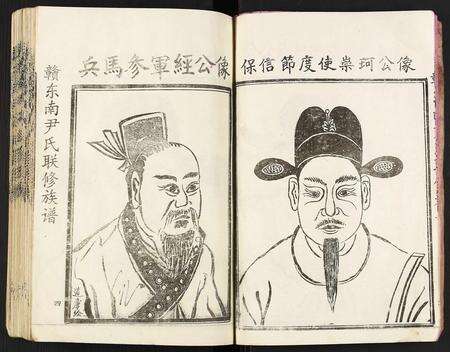 保信節度使崇珂公像
兵馬參軍經公像
贛东南尹氏联修族谱
四